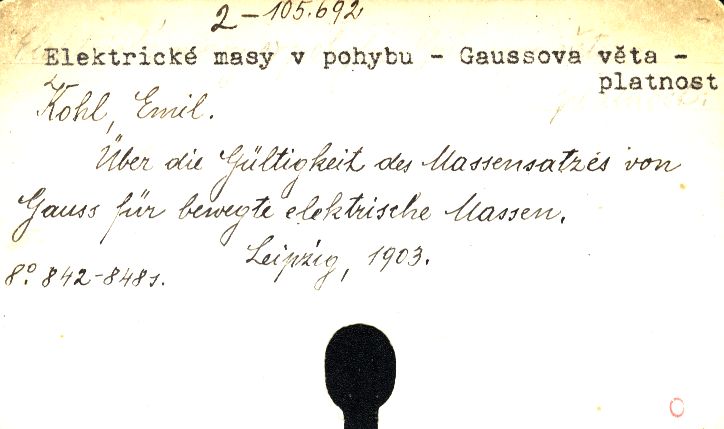 2-105.692
Elektrické masy v pohybu - Gaussova věta -
platnost
Kohl, Emil.
Über die Gültigkeit des Massensatzes von
Gauss für bewegte elektrische Massen.
Leipzig, 1903.
8° 842-848 s.